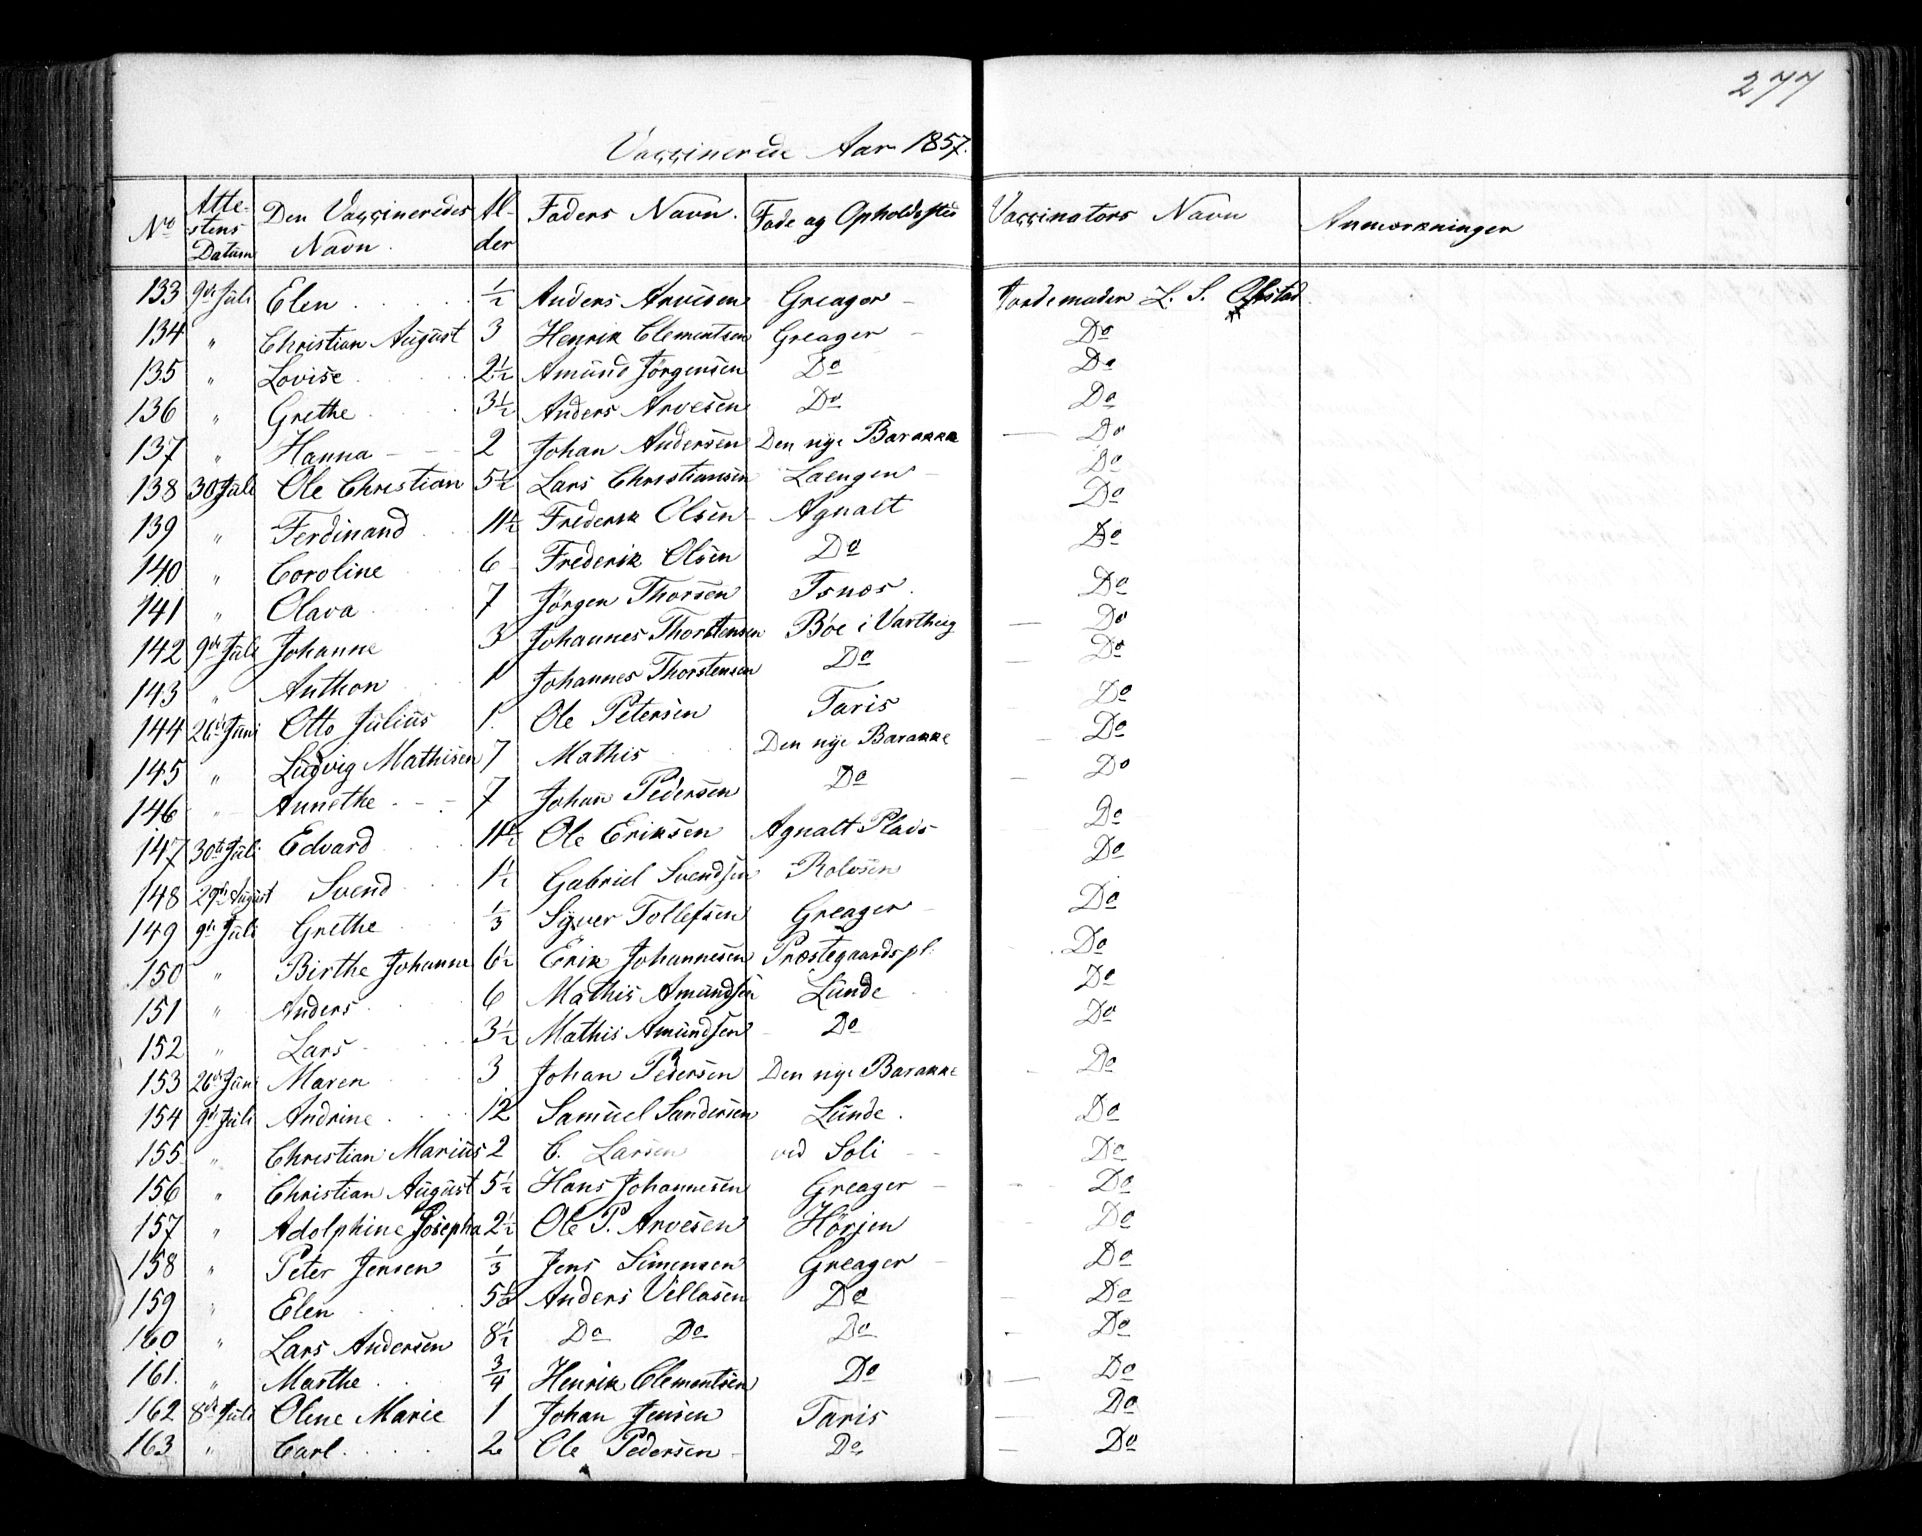 277
Vaccinerede Aar 1857.
No | Atte-stens Datum | Den Vaccineredes Navn. | Al-der | Faders Navn. | Føde og Opholdssted | Vaccinators Navn | Anmærkninger
133 | 9de Juli | Elen | ½ | Anders Arvesen | Greager | Jordemoder L. S. Opstad
134 | " | Christian August | 3 | Henrik Clementsen | Greager | Do
135 | " | Lovise | 2½ | Amund Jörgensen | Do | Do
136 | " | Grethe | 3½ | Anders Arvesen | Do | Do
137 | " | Hanna | 2 | Johan Andersen | Den nye Barakke | Do
138 | 30 Juli | Ole Christian | 5½ | Lars Christiansen | Laengen | Do
139 | " | Ferdinand | 11½ | Frederik Olsen | Agnalt | Do
140 | " | Coroline | 6 | Frederik Olsen | Do | Do
141 | " | Olava | 7 | Jörgen Thorsen | Isnæs. | Do
142 | 9de Juli | Johanne | 3 | Johannes Thorstensen | Böe i Varteig | Do
143 | " | Anthon | 1 | Johannes Thorstensen | Do | Do
144 | 26de Juni | Otto Julius | 1. | Ole Petersen | Taris | Do
145 | " | Ludvig Mathisen | 7 | Mathis | Den nye Barakke | Do
146 | " | Annethe | 7 | Johan Pedersen | Do | Do
147 | 30te Juli | Edvard | 11½ | Ole Eriksen | Agnalt Plads | Do
148 | 29de August | Svend | 1½ | Gabriel Svendsen | Rolvsen | Do
149 | 9de Juli | Grethe | ⅓ | Syver Tollefsen | Greager | Do
150 | " | Birthe Johanne | 6½ | Erik Johannesen | Præstegaardspl. | Do
151 | " | Anders | 6 | Mathis Amundsen | Lunde | Do
152 | " | Lars | 3½ | Mathis Amundsen | Do | Do
153 | 26de Juni | Maren | 3 | Johan Pedersen | Den nye Barakke | Do
154 | 9de Juli | Andrine | 12 | Samuel Sandersen | Lunde. | Do
155 | " | Christian Marius | 2 | C. Larsen | ved Soli | Do
156 | " | Christian August | 5½ | Hans Johannesen | Greager | Do
157 | " | Adolphine Josepha | 2½ | Ole P. Arvesen | Hörjen | Do
158 | " | Peter Jensen | ⅓ | Jens Simensen | Greager | Do
159 | " | Elen | 5½ | Anders Villasen | Do | Do
160 | " | Lars Andersen | 8½ | Do Do | Do | Do
161. | " | Marthe | ¾ | Henrik Clementsen | Do | Do
162 | 8de Juli | Olene Marie | 1 | Johan Jensen | Taris | Do
163 | " | Carl | 2 | Ole Pedersen | Do | Do